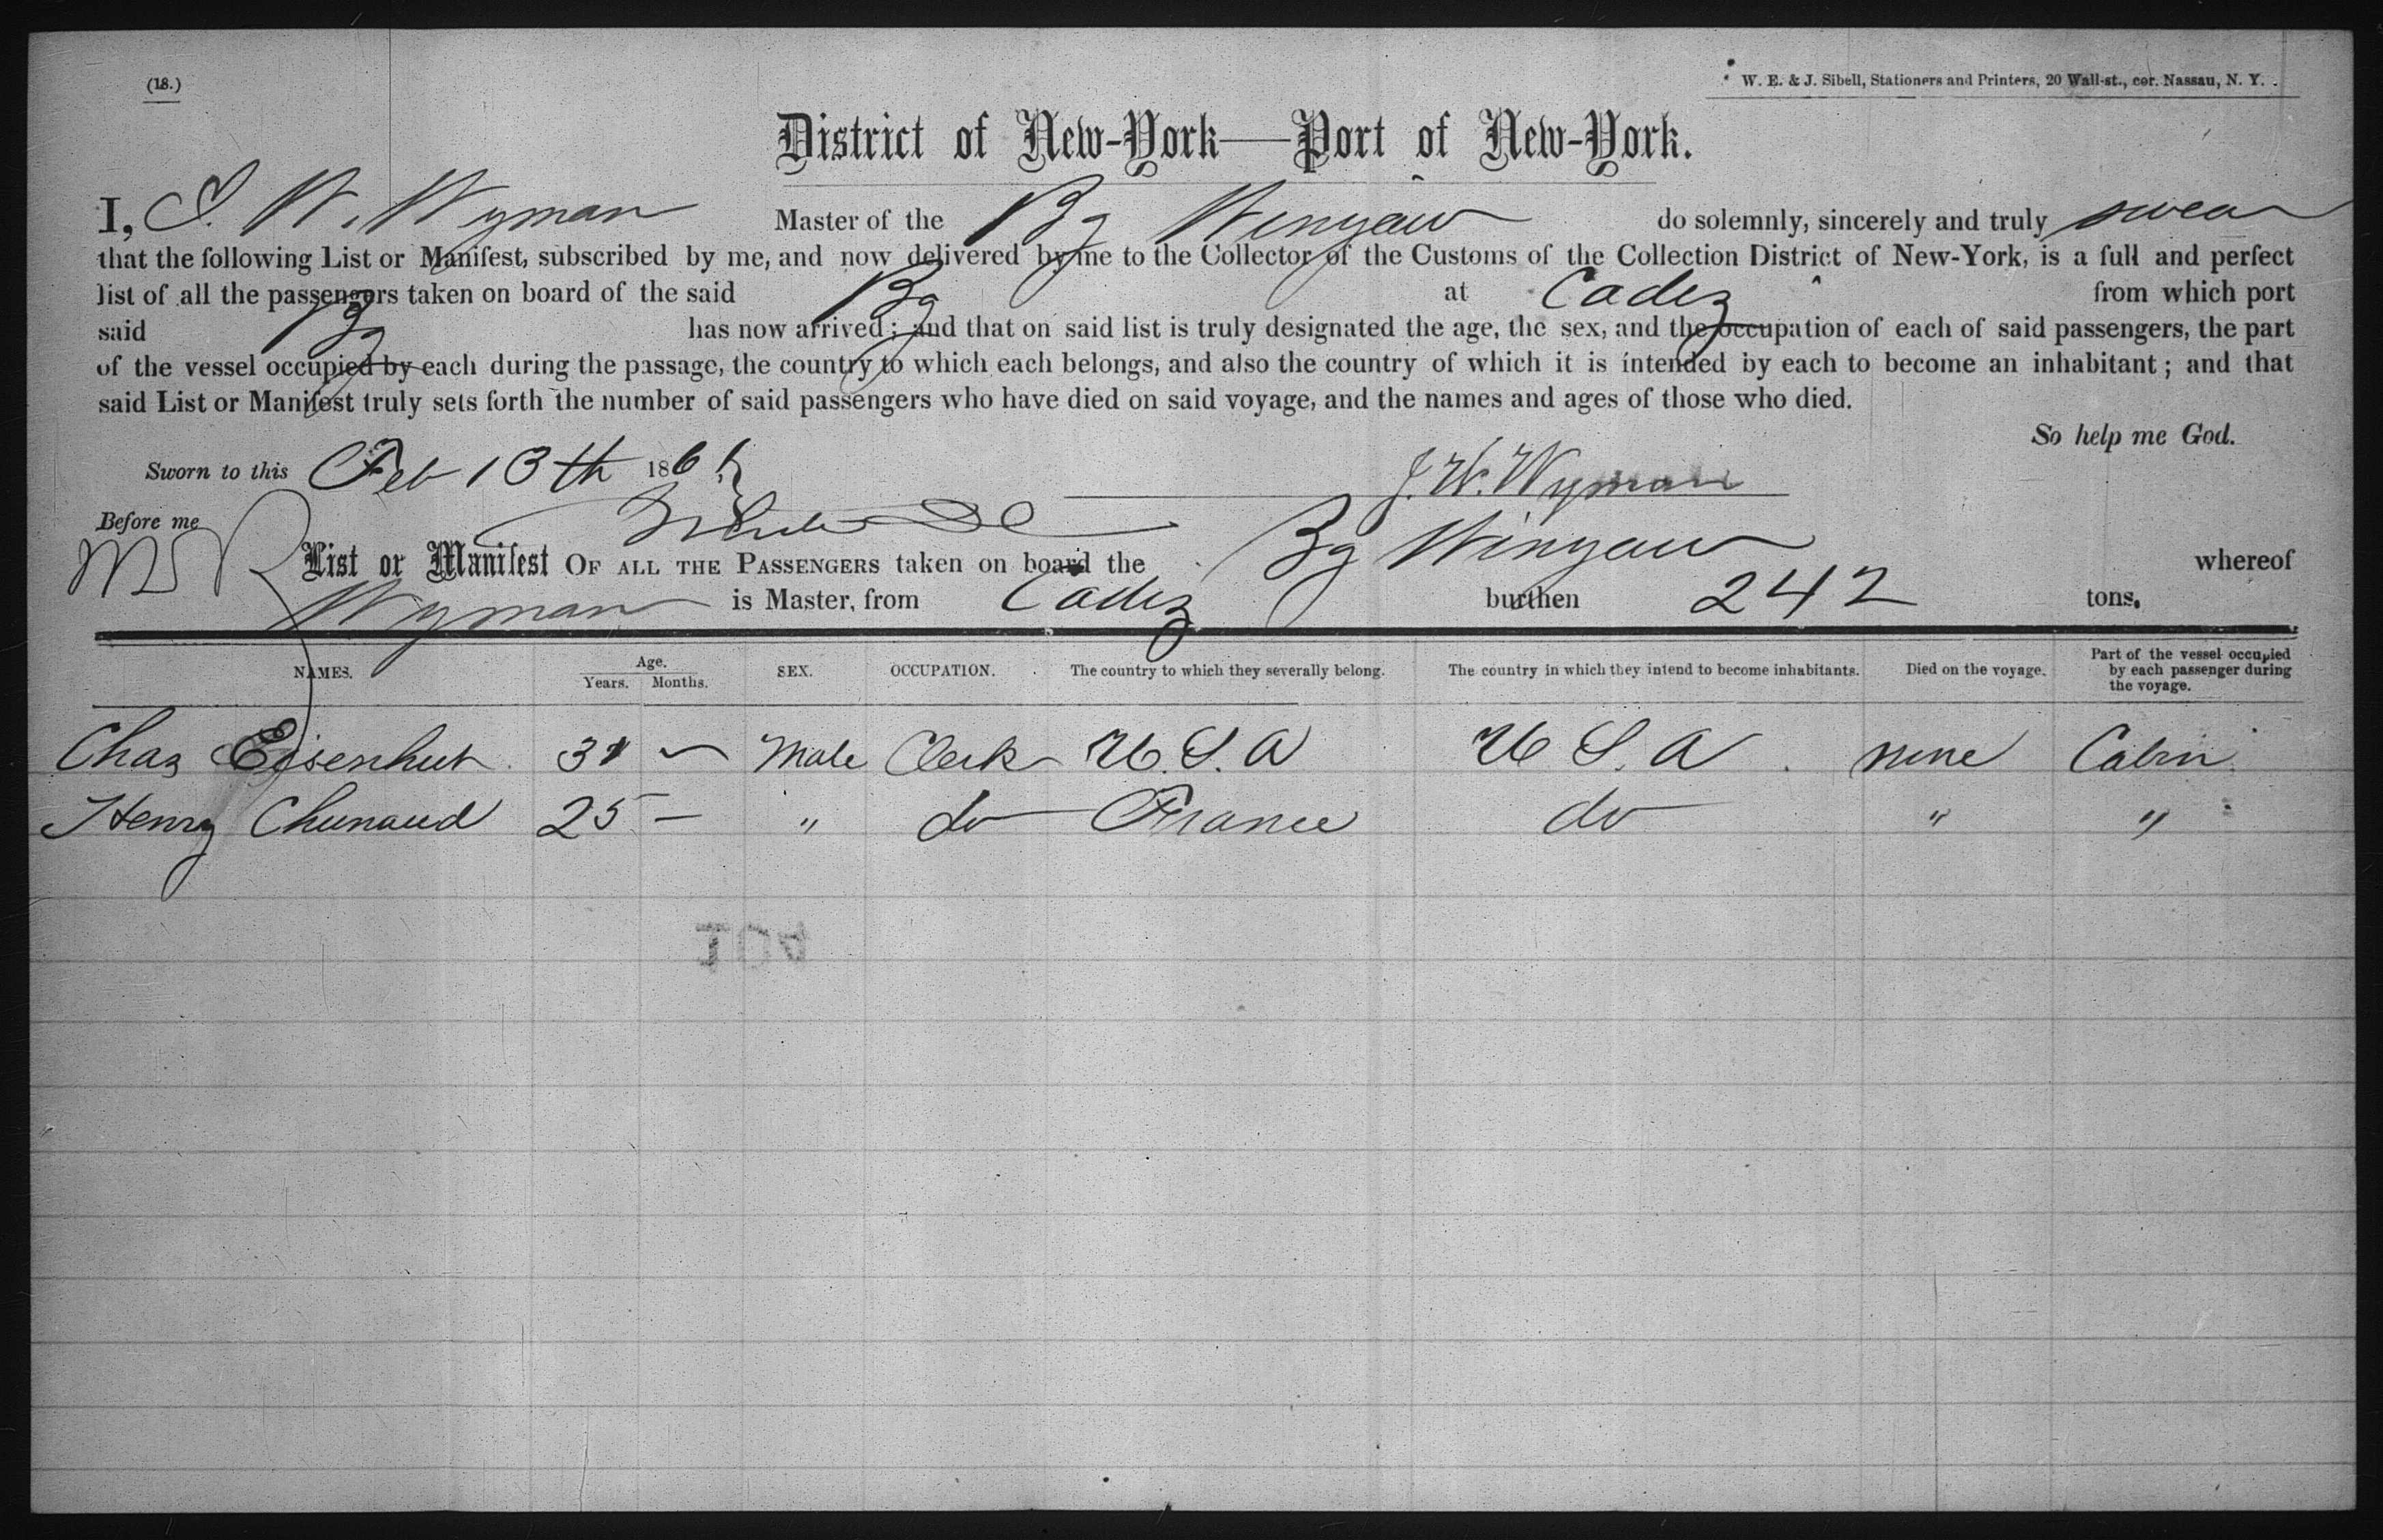 (18.)
W. E. & J. Sibell, Stationers and Printers, 20 Wall-st., cor. Nassau, N. Y.
District of New-York—Port of New-York.
I, J. W. Wyman Master of the Bg Winyaw do solemnly, sincerely and truly swear
that the following List or Manifest, subscribed by me, and now delivered by me to the Collector of the Customs of the Collection District of New-York, is a full and perfect
list of all the passengers taken on board of the said Bg at Cadiz from which port
said Bg has now arrived; and that on said list is truly designated the age, the sex, and the occupation of each of said passengers, the part
of the vessel occupied by each during the passage, the country to which each belongs, and also the country of which it is intended by each to become an inhabitant; and that
said List or Manifest truly sets forth the number of said passengers who have died on said voyage, and the names and ages of those who died.
So help me God.
Sworn to this Feb 13th 186
J. W. Wyman
Before me
List or Manifest OF ALL THE PASSENGERS taken on board the Bg Winyaw whereof
Wyman is Master, from Cadiz burthen 242 tons.
NAMES. Age. Years. Months. SEX. OCCUPATION. The country to which they severally belong. The country in which they intend to become inhabitants. Died on the voyage. Part of the vessel occupied by each passenger during the voyage.
Chas Eisenhut 31 — Male Clerk U.S.A U S. A none Cabin
Henry Chunaud 25 — " do France do " "
104